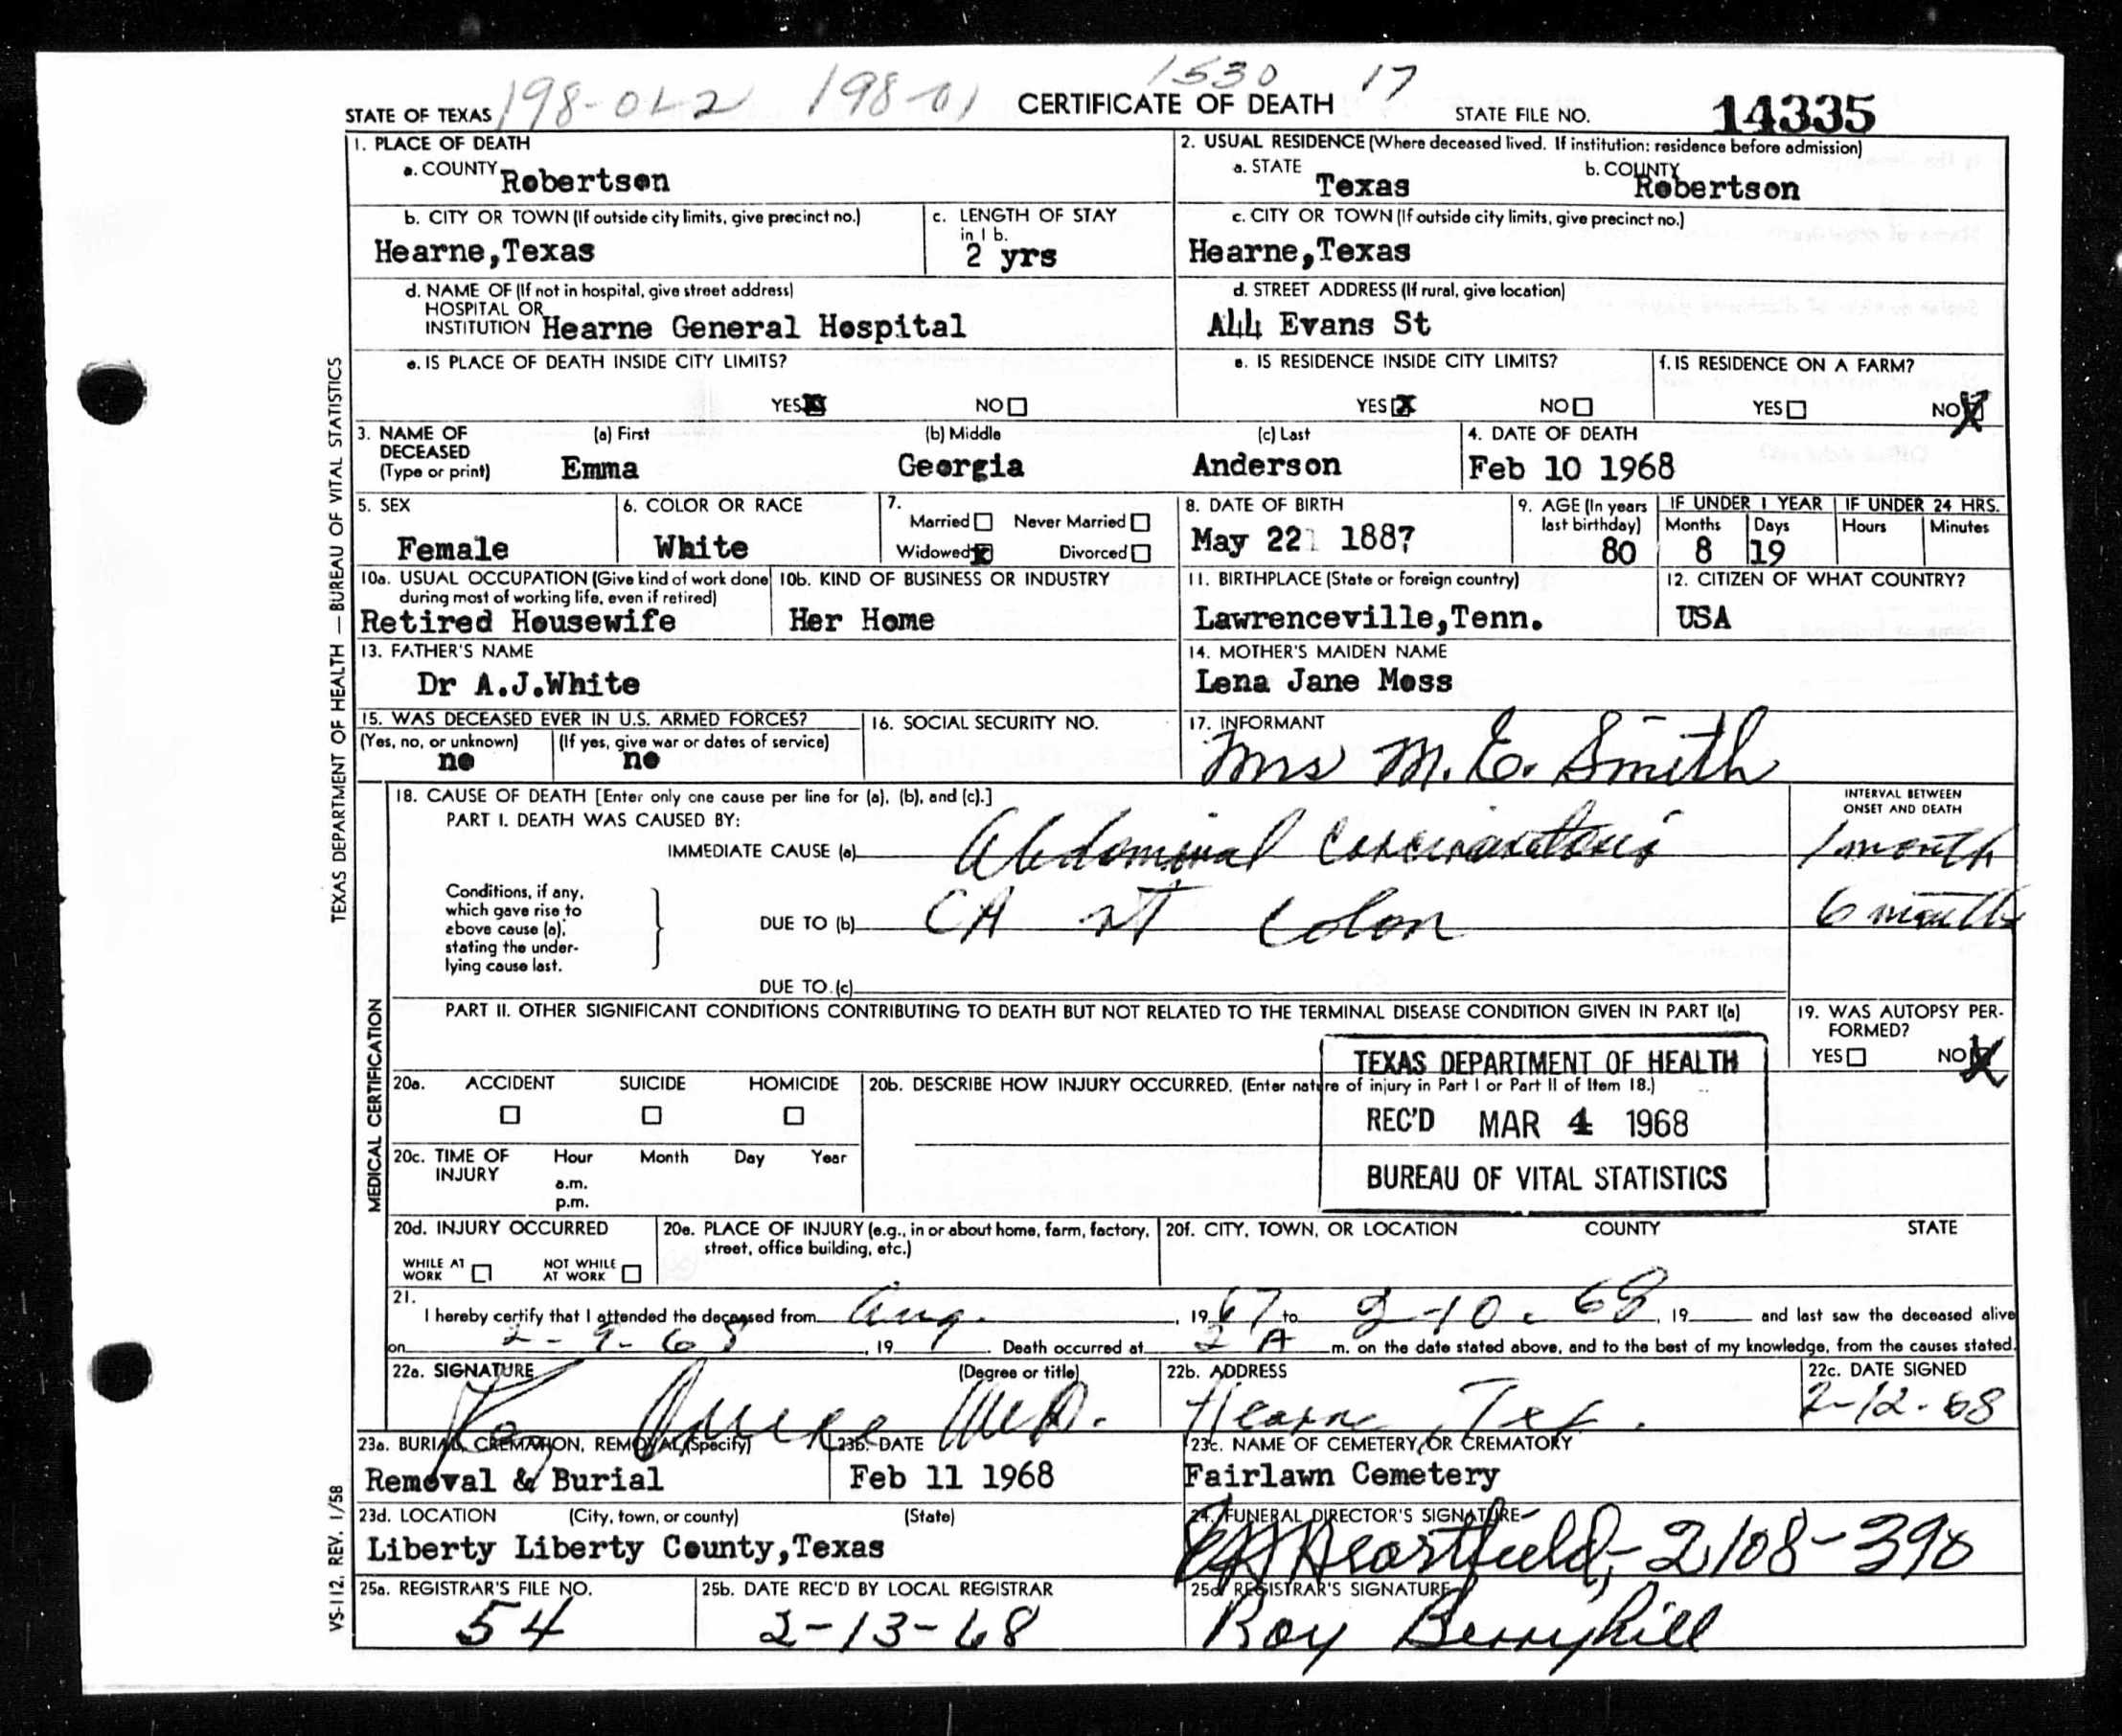 1530 17
STATE OF TEXAS 198-0L2 198-01 CERTIFICATE OF DEATH STATE FILE NO. 14335
1. PLACE OF DEATH
a. COUNTY Robertson
2. USUAL RESIDENCE (Where deceased lived. If institution: residence before admission)
a. STATE Texas b. COUNTY Robertson
b. CITY OR TOWN (If outside city limits, give precinct no.)
Hearne,Texas
c. LENGTH OF STAY in 1 b.
2 yrs
c. CITY OR TOWN (If outside city limits, give precinct no.)
Hearne,Texas
d. NAME OF (If not in hospital, give street address)
HOSPITAL OR
INSTITUTION Hearne General Hospital
d. STREET ADDRESS (If rural, give location)
A44 Evans St
e. IS PLACE OF DEATH INSIDE CITY LIMITS?
YES NO
e. IS RESIDENCE INSIDE CITY LIMITS?
YES NO
f. IS RESIDENCE ON A FARM?
YES NO
3. NAME OF DECEASED (Type or print)
(a) First (b) Middle (c) Last
Emma Georgia Anderson
4. DATE OF DEATH
Feb 10 1968
5. SEX
Female
6. COLOR OR RACE
White
7.
Married Never Married
Widowed Divorced
8. DATE OF BIRTH
May 22 1887
9. AGE (In years last birthday)
80
IF UNDER 1 YEAR IF UNDER 24 HRS.
Months Days Hours Minutes
8 19
10a. USUAL OCCUPATION (Give kind of work done
during most of working life, even if retired)
Retired Housewife
10b. KIND OF BUSINESS OR INDUSTRY
Her Home
11. BIRTHPLACE (State or foreign country)
Lawrenceville,Tenn.
12. CITIZEN OF WHAT COUNTRY?
USA
13. FATHER'S NAME
Dr A.J.White
14. MOTHER'S MAIDEN NAME
Lena Jane Moss
15. WAS DECEASED EVER IN U.S. ARMED FORCES?
(Yes, no, or unknown) (If yes, give war or dates of service)
no no
16. SOCIAL SECURITY NO.
17. INFORMANT
Mrs M. E. Smith
18. CAUSE OF DEATH [Enter only one cause per line for (a), (b), and (c).]
INTERVAL BETWEEN
ONSET AND DEATH
PART I. DEATH WAS CAUSED BY:
IMMEDIATE CAUSE (a) Abdominal Carcinomatosis 1 month
Conditions, if any,
which gave rise to
above cause (a),
stating the under-
lying cause last.
DUE TO (b) CA rt Colon 6 months
DUE TO (c)
PART II. OTHER SIGNIFICANT CONDITIONS CONTRIBUTING TO DEATH BUT NOT RELATED TO THE TERMINAL DISEASE CONDITION GIVEN IN PART I(a)
19. WAS AUTOPSY PER-
FORMED?
YES NO
TEXAS DEPARTMENT OF HEALTH
REC'D MAR 4 1968
BUREAU OF VITAL STATISTICS
20a. ACCIDENT SUICIDE HOMICIDE
20b. DESCRIBE HOW INJURY OCCURRED. (Enter nature of injury in Part I or Part II of Item 18.)
20c. TIME OF INJURY Hour Month Day Year
a.m.
p.m.
20d. INJURY OCCURRED
WHILE AT WORK NOT WHILE AT WORK
20e. PLACE OF INJURY (e.g., in or about home, farm, factory,
street, office building, etc.)
20f. CITY, TOWN, OR LOCATION COUNTY STATE
21.
I hereby certify that I attended the deceased from Aug. , 19 67 to 2-10-68 , 19 and last saw the deceased alive
on 2-9-68 , 19 . Death occurred at 2 A m. on the date stated above, and to the best of my knowledge, from the causes stated.
22a. SIGNATURE (Degree or title)
M.D.
22b. ADDRESS
Hearne, Tex.
22c. DATE SIGNED
2-12-68
23a. BURIAL, CREMATION, REMOVAL (Specify)
Removal & Burial
23b. DATE
Feb 11 1968
23c. NAME OF CEMETERY OR CREMATORY
Fairlawn Cemetery
23d. LOCATION (City, town, or county) (State)
Liberty Liberty County,Texas
24. FUNERAL DIRECTOR'S SIGNATURE
Heartfield, 2108-390
25a. REGISTRAR'S FILE NO.
54
25b. DATE REC'D BY LOCAL REGISTRAR
2-13-68
25c. REGISTRAR'S SIGNATURE
Roy Berryhill
TEXAS DEPARTMENT OF HEALTH — BUREAU OF VITAL STATISTICS
MEDICAL CERTIFICATION
VS-112, REV. 1/58